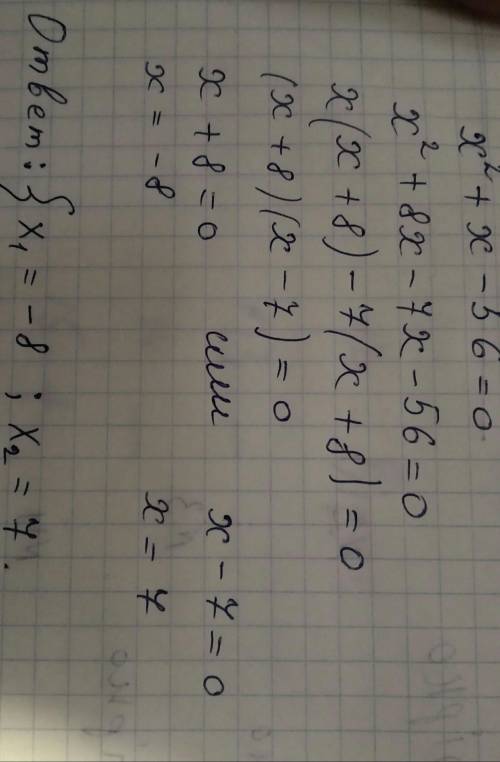 x² + x - 56 = 0
x² + 8x - 7x - 56 = 0
x(x + 8) - 7(x + 8) = 0
(x + 8)(x - 7) = 0
x + 8 = 0 или x - 7 = 0
x = -8 x = 7
Ответ: { x₁ = -8 ; x₂ = 7.